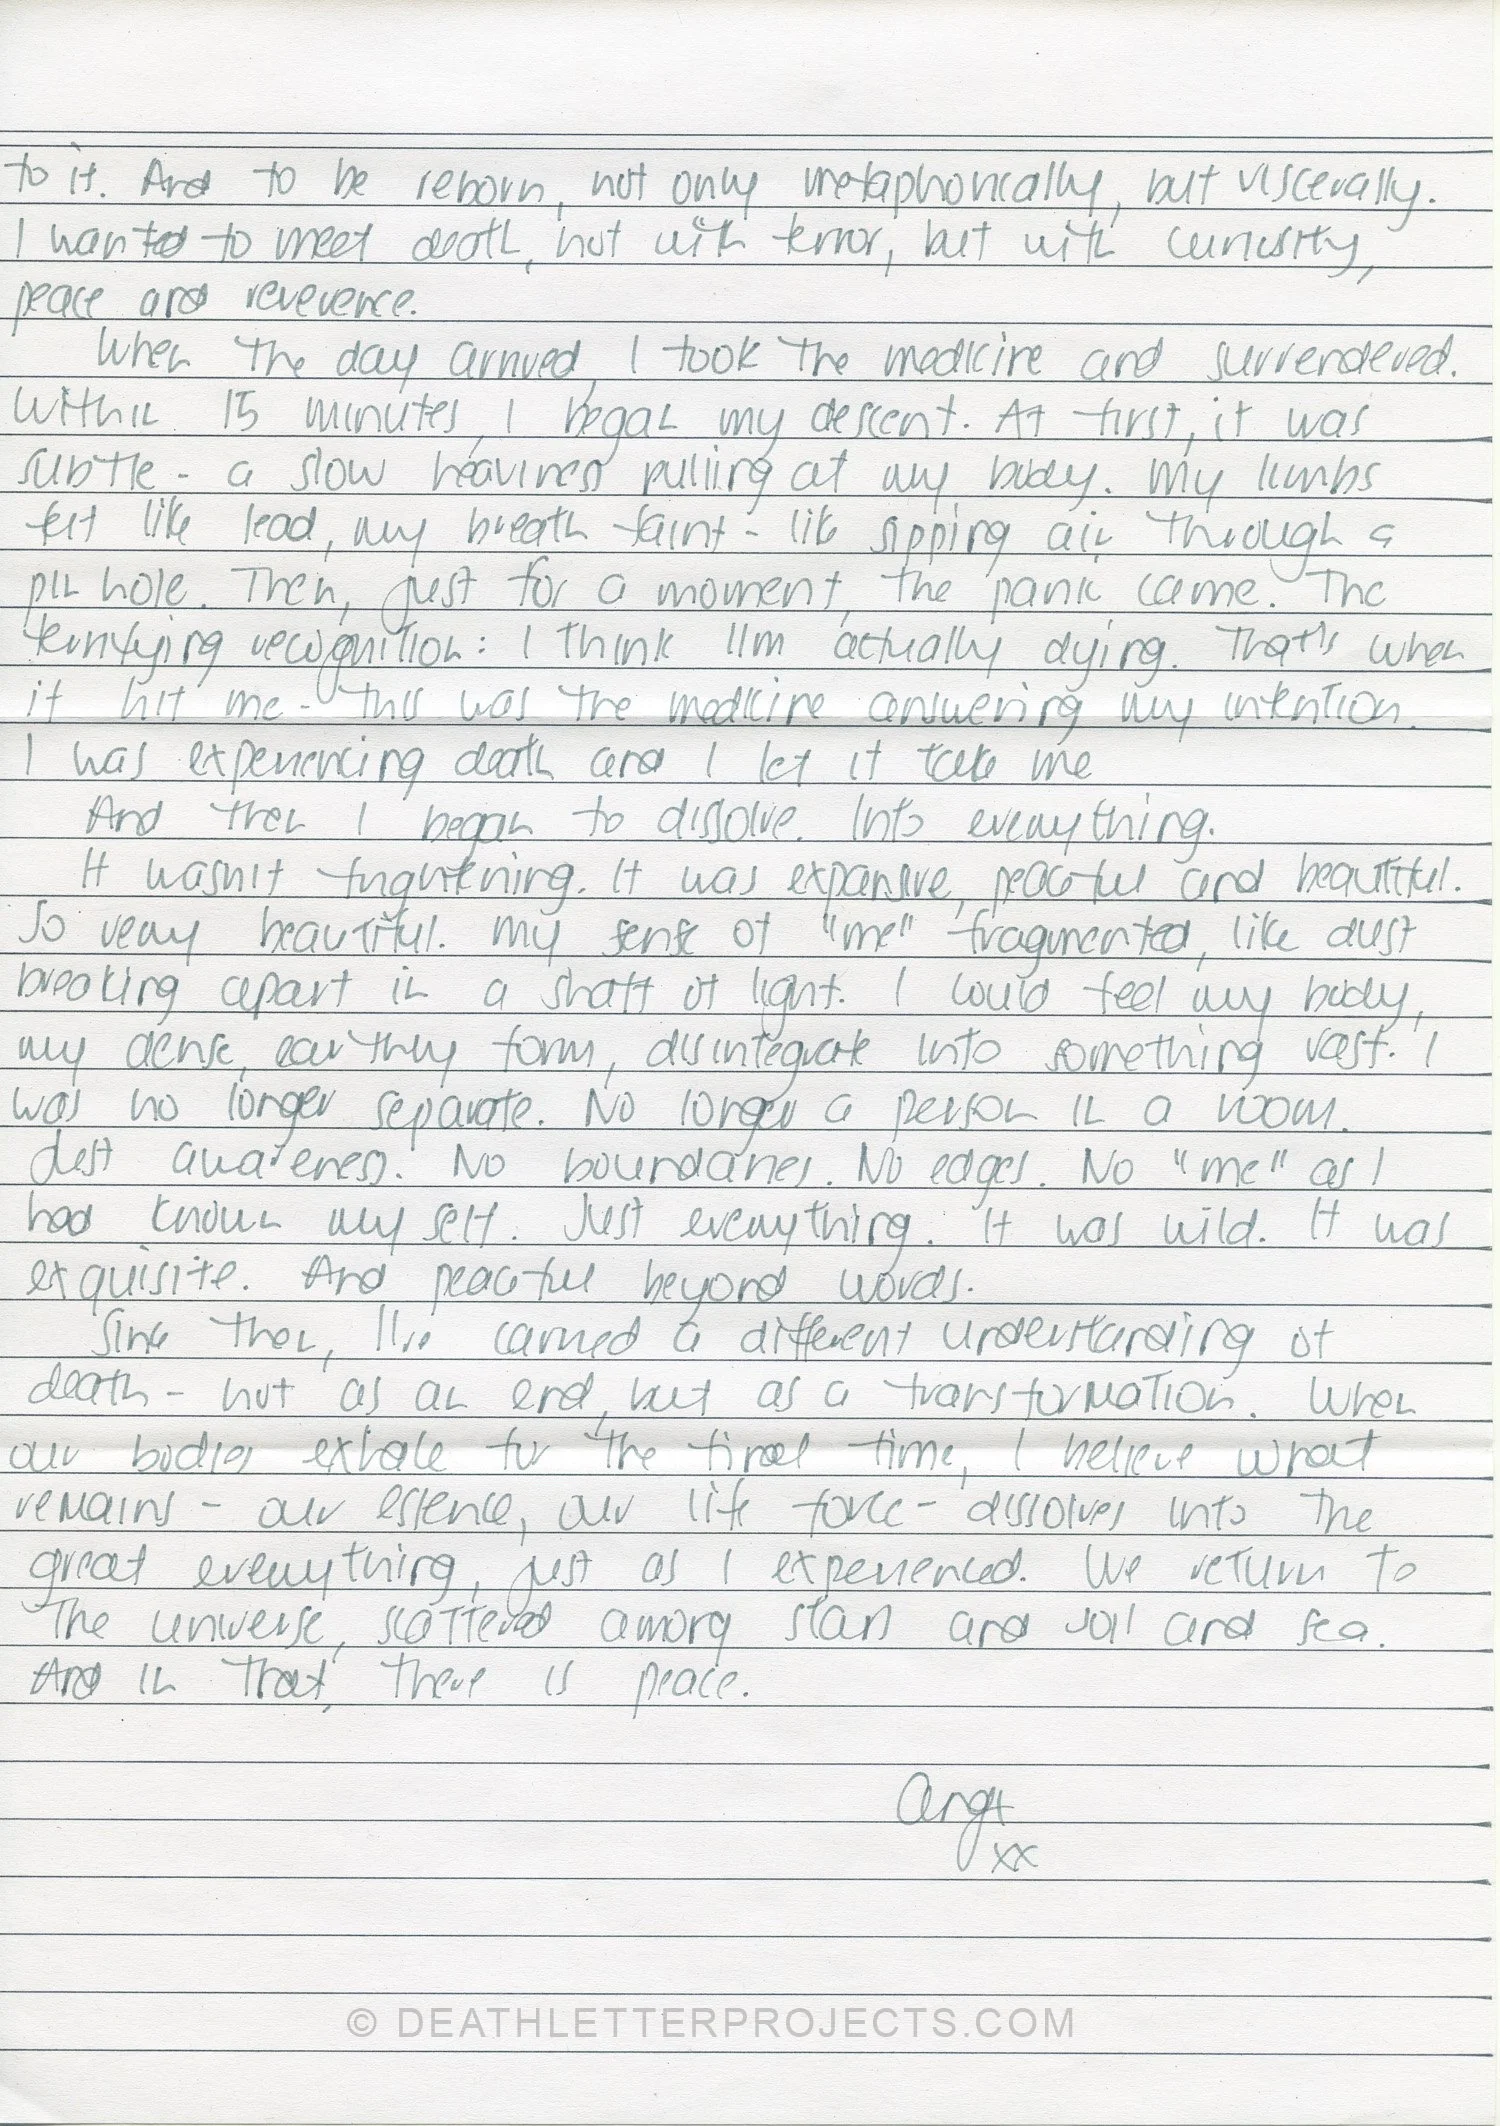 to it. And to be reborn, not only metaphorically, but viscerally.
I wanted to meet death, not with terror, but with curiosity,
peace and reverence.
When the day arrived, I took the medicine and surrendered.
Within 15 minutes, I began my descent. At first, it was
subtle - a slow heaviness pulling at my body. My limbs
felt like lead, my breath faint - like sipping air through a
pin hole. Then, just for a moment, the panic came. The
terrifying recognition: I think I'm actually dying. That's when
it hit me - this was the medicine answering my intention.
I was experiencing death and I let it take me
And then I began to dissolve. Into everything.
It wasn't frightening. It was expansive, peaceful and beautiful.
So very beautiful. My sense of "me" fragmented, like dust
breaking apart in a shaft of light. I could feel my body,
my dense, earthly form, disintegrate into something vast. I
was no longer separate. No longer a person in a room.
Just awareness. No boundaries. No edges. No "me" as I
had known myself. Just everything. It was wild. It was
exquisite. And peaceful beyond words.
Since then, I've carried a different understanding of
death - not as an end, but as a transformation. When
our bodies exhale for the final time, I believe what
remains - our essence, our life force - dissolves into the
great everything, just as I experienced. We return to
the universe, scattered among stars and soil and sea.
And in that, there is peace.
xx
© DEATHLETTERPROJECTS.COM